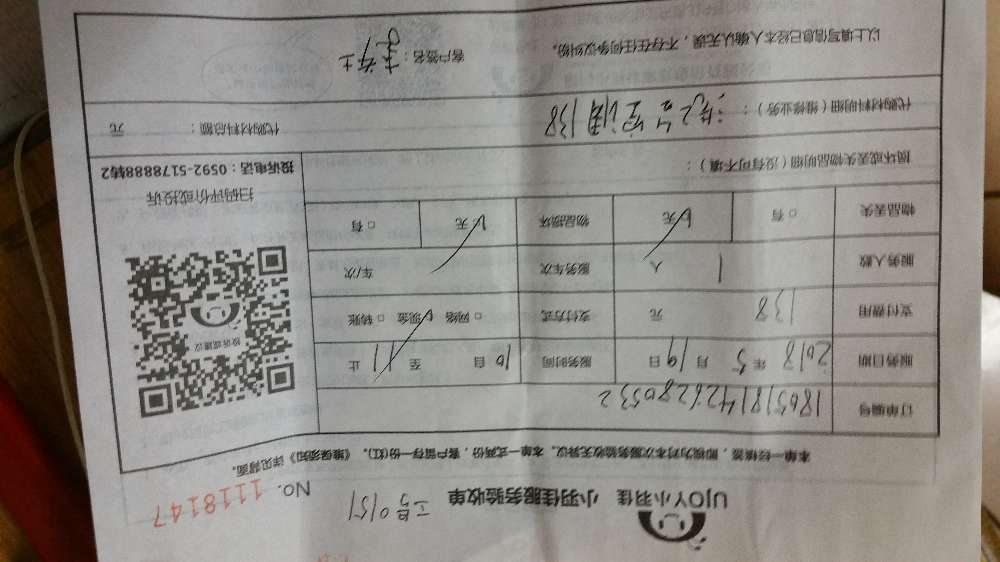 UJOY小羽佳 小羽佳服务验收单 NO. 1118147
本单一经核签，即视为对本次服务验收无异议。本单一式两份，客户留存一份(红)。《维保须知》详见背面。
订单编号 1805181426280532
服务日期 2018 年 5 月 19 日 服务时间 10 自 至 11 止
支付费用 138 元 支付方式 □ 网络 √ 现金 □ 转账
服务人数 1 人 服务车次 车/次
物品丢失 □ 有 √ 无 物品损坏 √ 无 □ 有
损坏或丢失物品明细（没有可不填）：
代购材料明细（维修业务）： 空调138
代购材料总额： 元
以上填写信息已经本人确认无误，不存在任何争议纠纷。 客户签名：
投诉或建议
扫码评价或投诉
投诉电话：0592-5178888转2